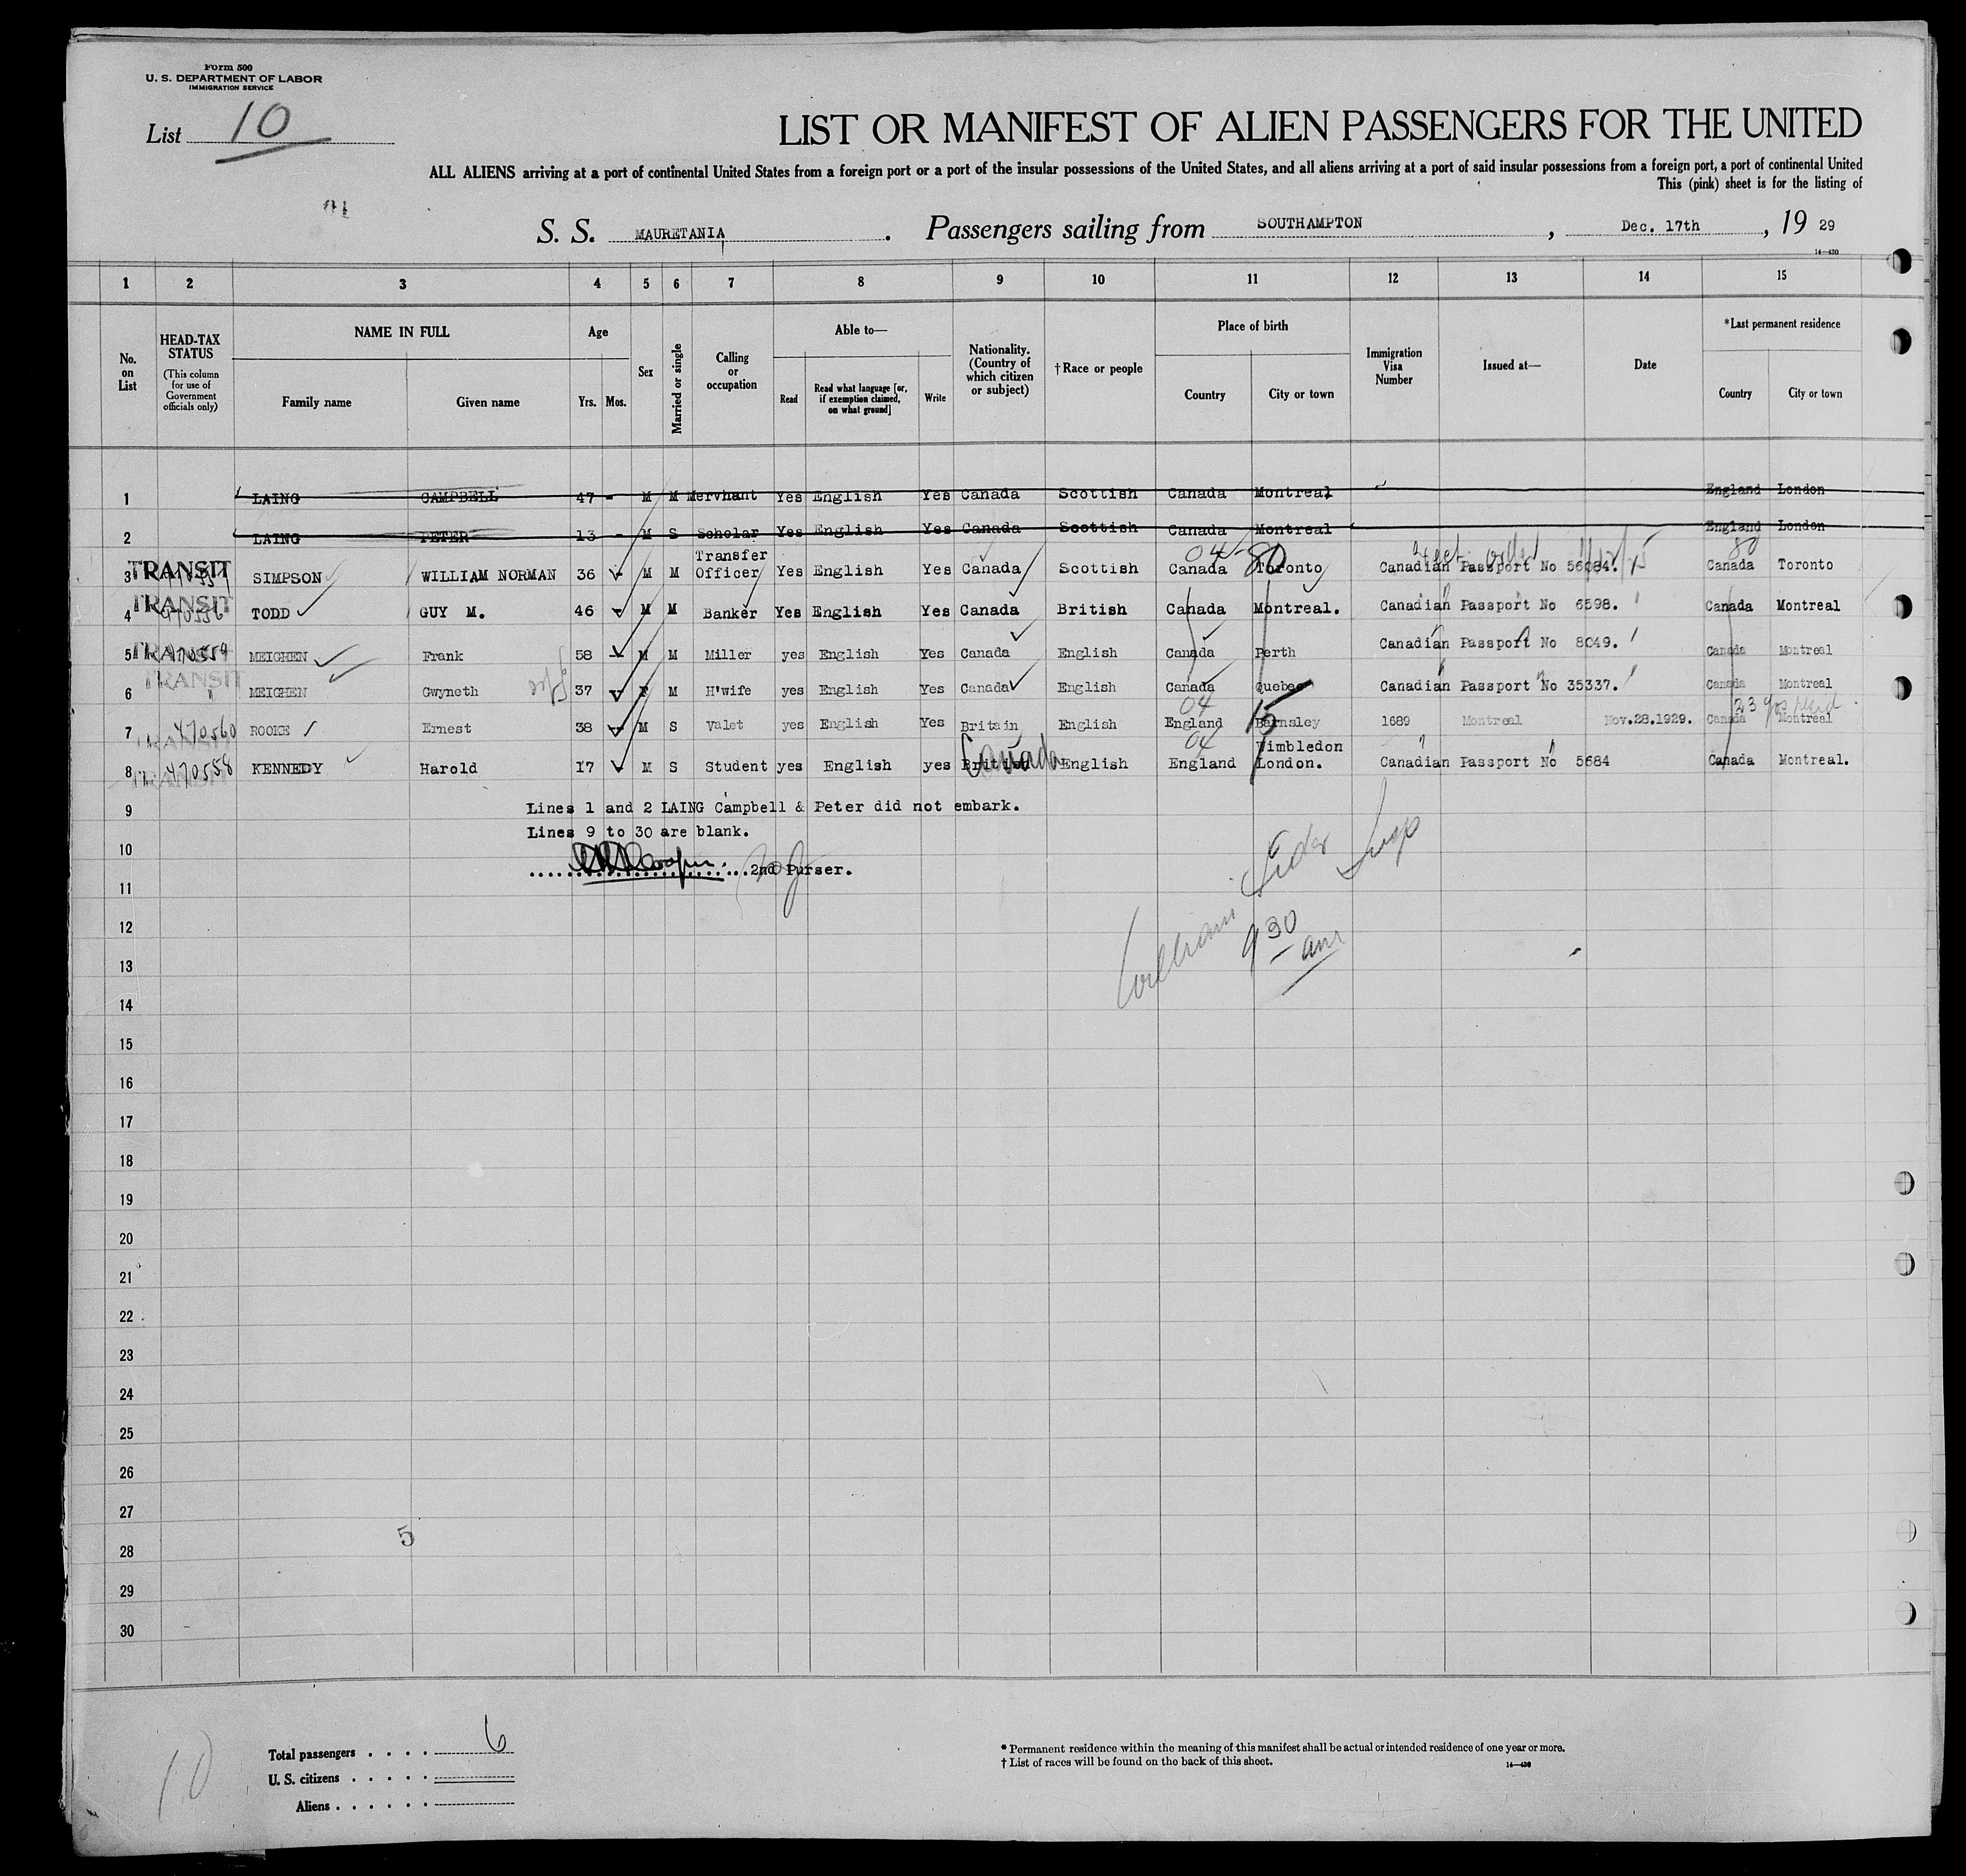 Form 500
U. S. DEPARTMENT OF LABOR
IMMIGRATION SERVICE
List 10
LIST OR MANIFEST OF ALIEN PASSENGERS FOR THE UNITED
ALL ALIENS arriving at a port of continental United States from a foreign port or a port of the insular possessions of the United States, and all aliens arriving at a port of said insular possessions from a foreign port, a port of continental United
This (pink) sheet is for the listing of
S. S. MAURETANIA . Passengers sailing from SOUTHAMPTON , Dec. 17th , 19 29
14—430
1 2 3 4 5 6 7 8 9 10 11 12 13 14 15
No. on List
HEAD-TAX STATUS
(This column for use of Government officials only)
NAME IN FULL
Family name
Given name
Age
Yrs. Mos.
Sex
Married or single
Calling or occupation
Able to—
Read
Read what language [or, if exemption claimed, on what ground]
Write
Nationality. (Country of which citizen or subject)
†Race or people
Place of birth
Country
City or town
Immigration Visa Number
Issued at—
Date
*Last permanent residence
Country
City or town
1 LAING CAMPBELL 47 - M M Mervhant Yes English Yes Canada Scottish Canada Montreal England London
2 LAING PETER 13 - M S Scholar Yes English Yes Canada Scottish Canada Montreal England London
04 80 80
3 TRANSIT SIMPSON WILLIAM NORMAN 36 M M Transfer Officer Yes English Yes Canada Scottish Canada Toronto Canadian Passport No 56084. Canada Toronto
4 TRANSIT 470556 TODD GUY M. 46 M M Banker Yes English Yes Canada British Canada Montreal. Canadian Passport No 6598. Canada Montreal
5 TRANSIT 470559 MEIGHEN Frank 58 M M Miller yes English Yes Canada English Canada Perth Canadian Passport No 8049. Canada Montreal
6 TRANSIT " MEIGHEN Gwyneth 37 F M H'wife yes English Yes Canada English Canada Quebec Canadian Passport No 35337. Canada Montreal
04 15 23
7 TRANSIT 470560 ROOKE Ernest 38 M S Valet yes English Yes Britain English England Barnsley 1689 Montreal Nov.28.1929. Canada Montreal
04
8 TRANSIT 470558 KENNEDY Harold 17 M S Student yes English yes Canada English England Wimbledon London. Canadian Passport No 5684 Canada Montreal.
9 Lines 1 and 2 LAING Campbell & Peter did not embark.
Lines 9 to 30 are blank.
10
..........................2nd Purser.
11
12
William
9 30 am
13
14
15
16
17
18
19
20
21
22
23
24
25
26
27
5
28
29
30
Total passengers . . . . 6
U. S. citizens . . . . .
Aliens . . . . . .
10
* Permanent residence within the meaning of this manifest shall be actual or intended residence of one year or more.
† List of races will be found on the back of this sheet.
14—430